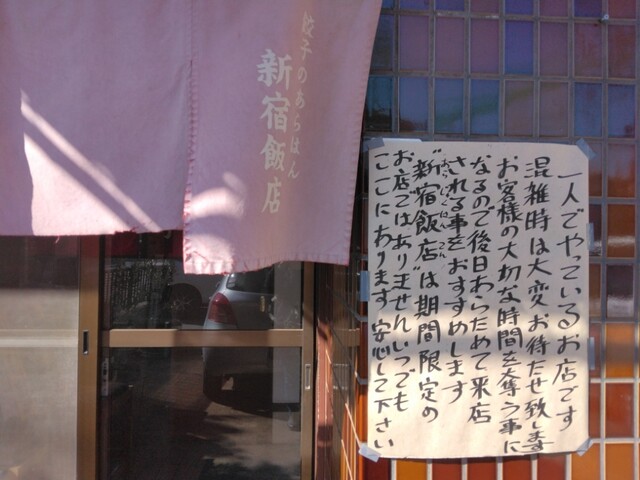 餃子のあらはん
新宿飯店
一人でやっているお店です
混雑時は大変お待たせ致します
お客様の大切な時間を奪う事に
なるので後日あらためて来店
される事をおすすめします
"新宿飯店"は期間限定の
お店ではありませんいつでも
ここにあります安心して下さい